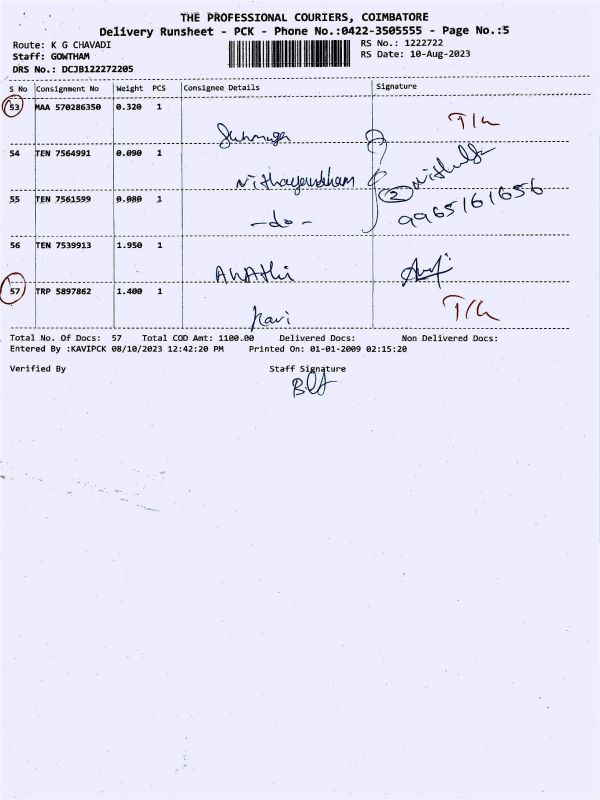 THE PROFESSIONAL COURIERS, COIMBATORE
Delivery Runsheet - PCK - Phone No.:0422-3505555 - Page No.:5
Route: K G CHAVADI
Staff: GOWTHAM
DRS No.: DCJB122272205
RS No.: 1222722
RS Date: 10-Aug-2023
S No Consignment No Weight PCS Consignee Details Signature
53 MAA 570286350 0.320 1
54 TEN 7564991 0.090 1
2
55 TEN 7561599 0.080 1
-do-
9965161656
56 TEN 7539913 1.950 1
57 TRP 5897862 1.400 1
Kavi
Total No. Of Docs: 57 Total COD Amt: 1100.00 Delivered Docs: Non Delivered Docs:
Entered By :KAVIPCK 08/10/2023 12:42:20 PM Printed On: 01-01-2009 02:15:20
Verified By Staff Signature